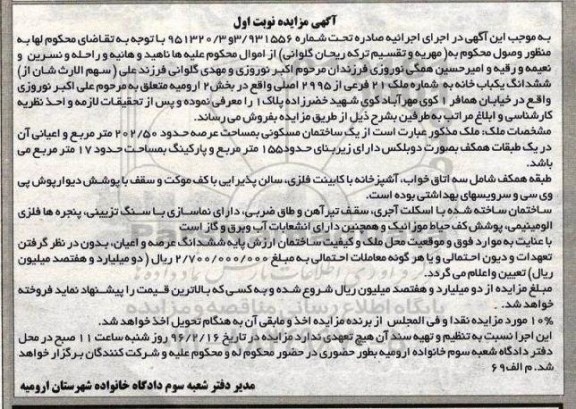 آگهی مزایده نوبت اول
به موجب این آگهی در اجرای اجرائیه صادره تحت شماره ۳/۹۳۱۵۵۶و۹۵۱۳۲۰/۳ با توجه به تقاضای محکوم لها به
منظور وصول محکوم به( مهریه و تقسیم ترکه ریحان گلوانی) از اموال محکوم علیه ها ناهید و هانیه و راحله و نسرین و
نعیمه و رقیه و امیرحسین همگی نوروزی فرزندان مرحوم اکبر نوروزی و مهدی گلوانی فرزند علی ( سهم الارث شان از)
ششدانگ یکباب خانه به شماره ملک ۲۱ فرعی از ۲۹۹۵ اصلی واقع در بخش۲ ارومیه متعلق به مرحوم علی اکبر نوروزی
واقع در خیابان همافر ۱ کوی مهرآباد کوی شهید خضرزاده پلاک۱ را معرفی نموده و پس از تحقیقات لازمه و اخذ نظریه
کارشناسی و ابلاغ مراتب به طرفین بشرح ذیل از طریق مزایده بفروش می رساند.
مشخصات ملک: ملک مذکور عبارت است از یک ساختمان مسکونی بمساحت عرصه حدود ۲۰۲/۵۰ متر مربع و اعیانی آن
در یک طبقات همکف بصورت دوبلکس دارای زیربنای حدود۱۵۵ متر مربع و پارکینگ بمساحت حدود ۱۷ متر مربع می
باشد.
طبقه همکف شامل سه اتاق خواب، آشپزخانه با کابینت فلزی، سالن پذیرایی با کف موکت و سقف با پوشش دیوارپوش پی
وی سی و سرویسهای بهداشتی بوده است.
ساختمان ساخته شده با اسکلت آجری، سقف تیرآهن و طاق ضربی، دارای نماسازی با سنگ تزیینی، پنجره ها فلزی
الومینیمی، پوشش کف حیاط موزائیک و همچنین دارای انشعابات آب وبرق و گاز است
با عنایت به موارد فوق و موقعیت محل ملک و کیفیت ساختمان ارزش پایه ششدانگ عرصه و اعیان، بدون در نظر گرفتن
تعهدات و دیون احتمالی و یا هر گونه معاملات احتمالی به مبلغ ۲/۷۰۰/۰۰۰/۰۰۰ ریال (دو میلیارد و هفتصد میلیون
ریال) تعیین واعلام می گردد.
مبلغ مزایده از دو میلیارد و هفتصد میلیون ریال شروع شده و به کسی که بالاترین قیمت را پیشنهاد نماید فروخته
خواهد شد.
۱۰% مورد مزایده نقدا و فی المجلس از برنده مزایده اخذ و مابقی آن به هنگام تحویل اخذ خواهد شد.
این اجرا نسبت به تنظیم و تهیه سند آن هیچ تعهدی ندارد مزایده در تاریخ ۹۶/۲/۱۶ روز شنبه ساعت ۱۱ صبح در محل
دفتر دادگاه شعبه سوم خانواده ارومیه بطور حضوری در حضور محکوم له و محکوم علیه و شرکت کنندگان برگزار خواهد
شد. م الف۶۹
مدیر دفتر شعبه سوم دادگاه خانواده شهرستان ارومیه